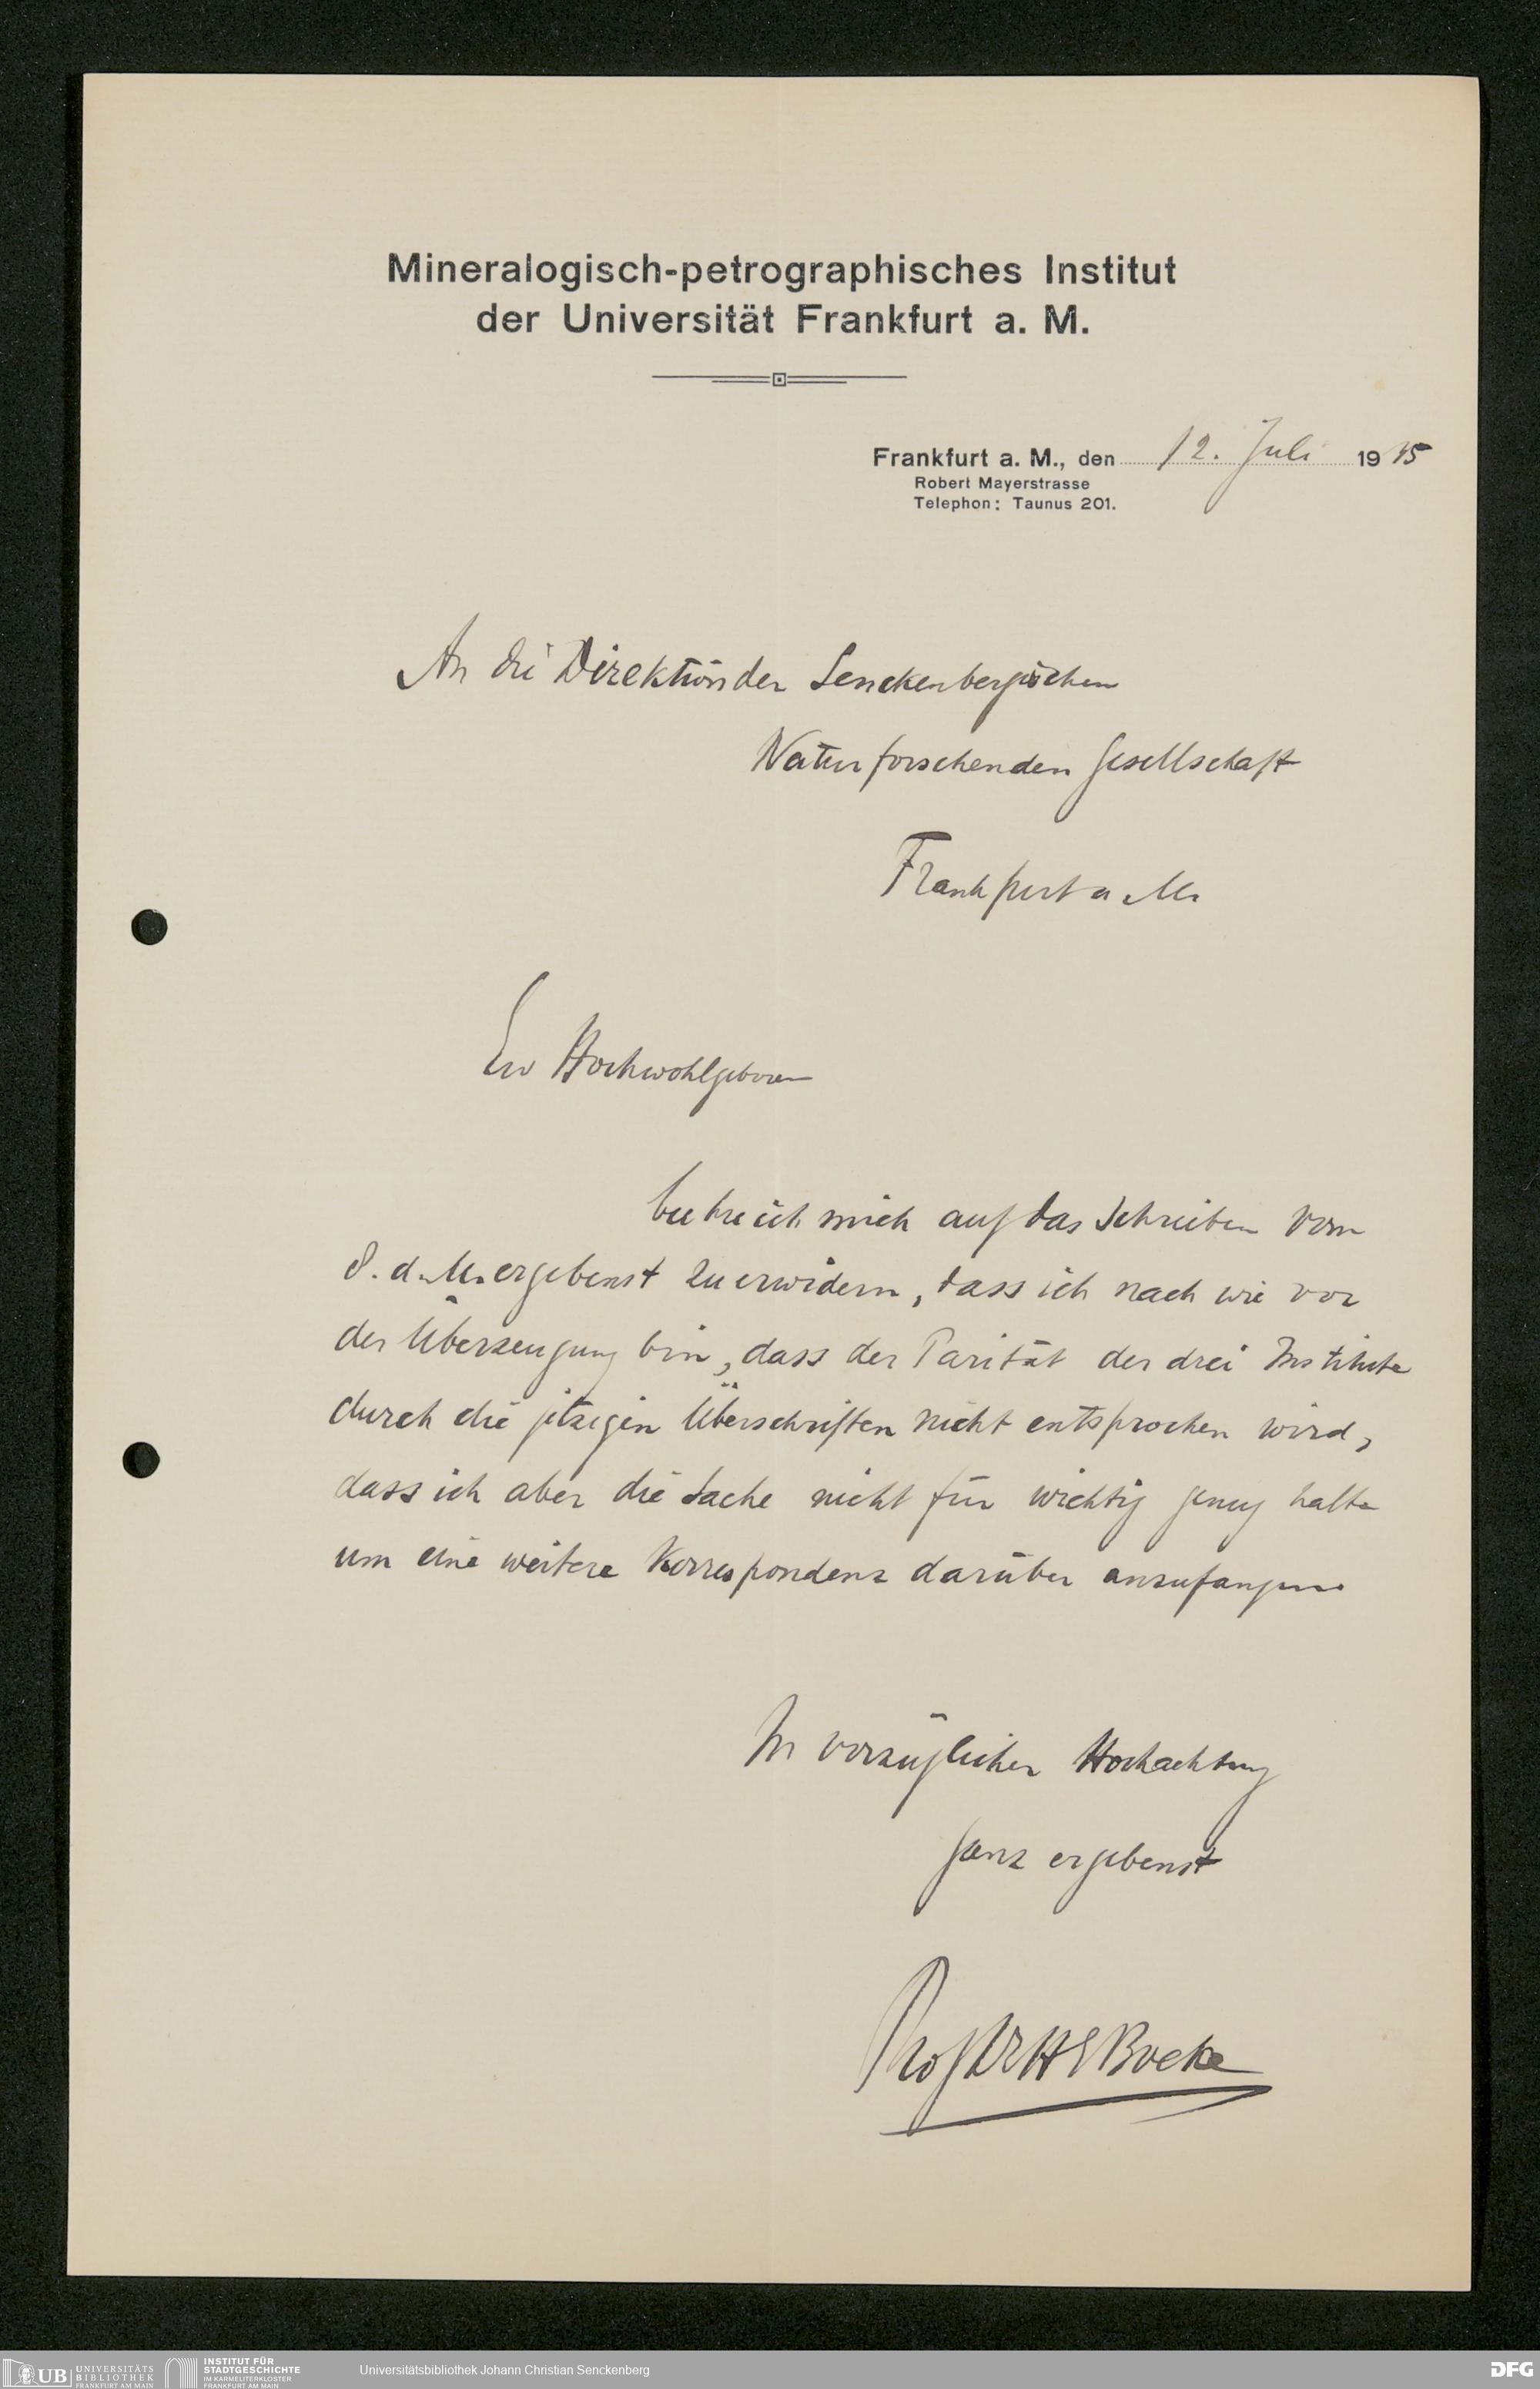 Mineralogisch-petrographisches Institut
der Universität Frankfurt a. M.
Frankfurt a. M., den 12. Juli 1915
Robert Mayerstrasse
Telephon: Taunus 201.
An die Direktion der Senckenbergischen
Naturforschenden Gesellschaft
Frankfurt a. M.
Ew Hochwohlgeboren
beehre ich mich auf das Schreiben vom
8. d. M. ergebenst zu erwidern, dass ich nach wie vor
der Überzeugung bin, dass der Parität der drei Institute
durch die jetzigen Überschriften nicht entsprochen wird,
dass ich aber die Sache nicht für wichtig genug halte
um eine weitere Korrespondenz darüber anzufangen.
In vorzüglicher Hochachtung
ganz ergebenst
Prof Dr H E Boeke
UB UNIVERSITÄTS
BIBLIOTHEK
FRANKFURT AM MAIN
INSTITUT FÜR
STADTGESCHICHTE
IM KARMELITERKLOSTER
FRANKFURT AM MAIN
Universitätsbibliothek Johann Christian Senckenberg
DFG